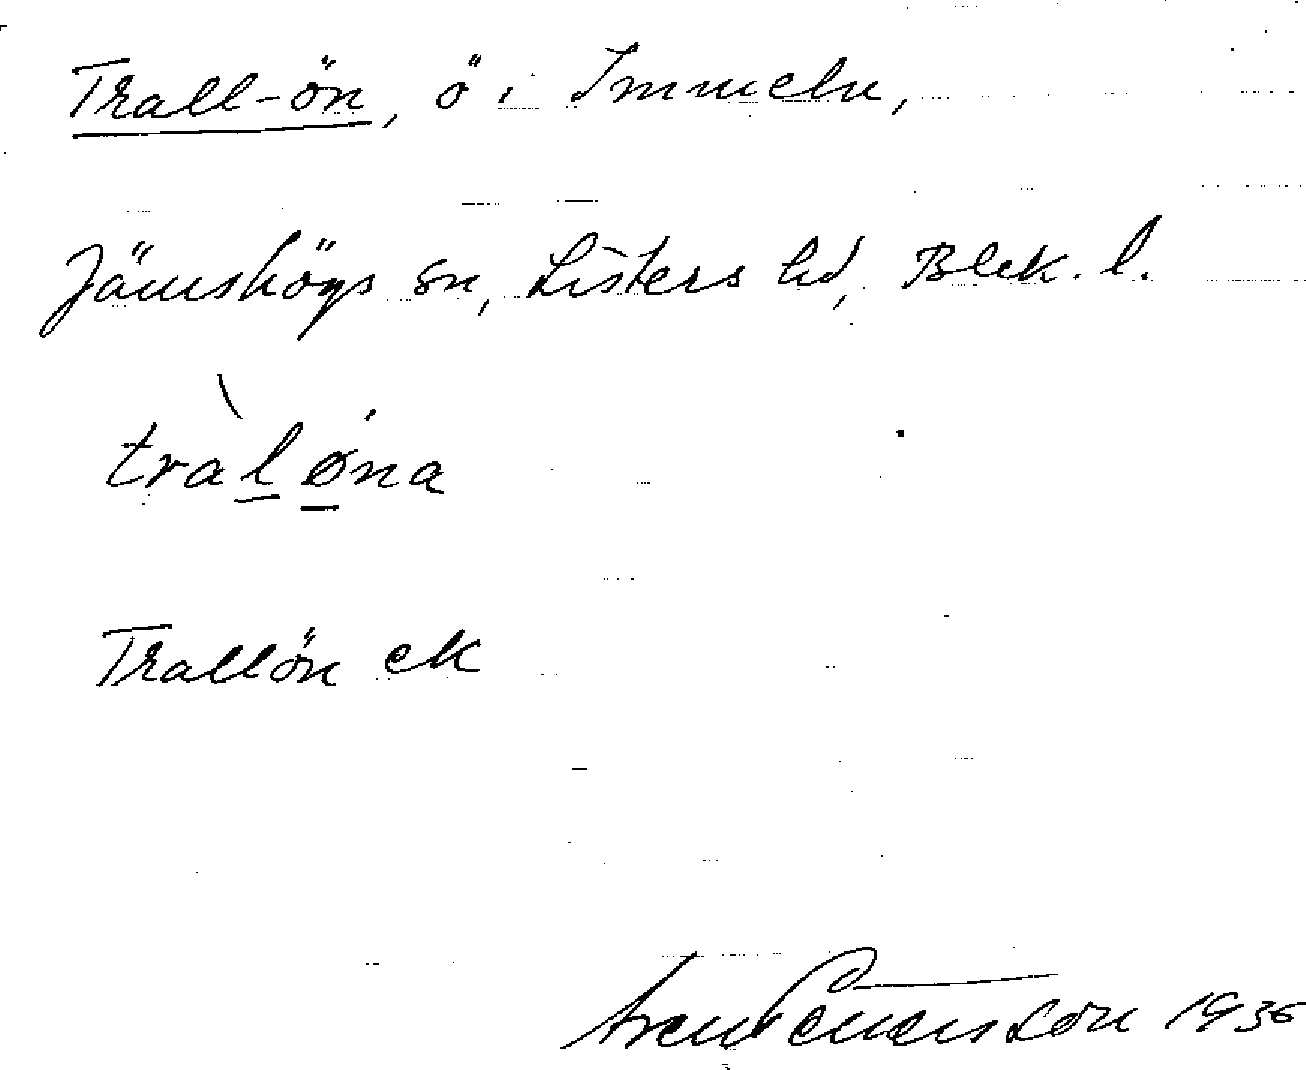 Trall-ön, ö i Immeln,
Jämshögs sn, Listers hd, Blek. l.
tràl øna
Trallön ek
1936